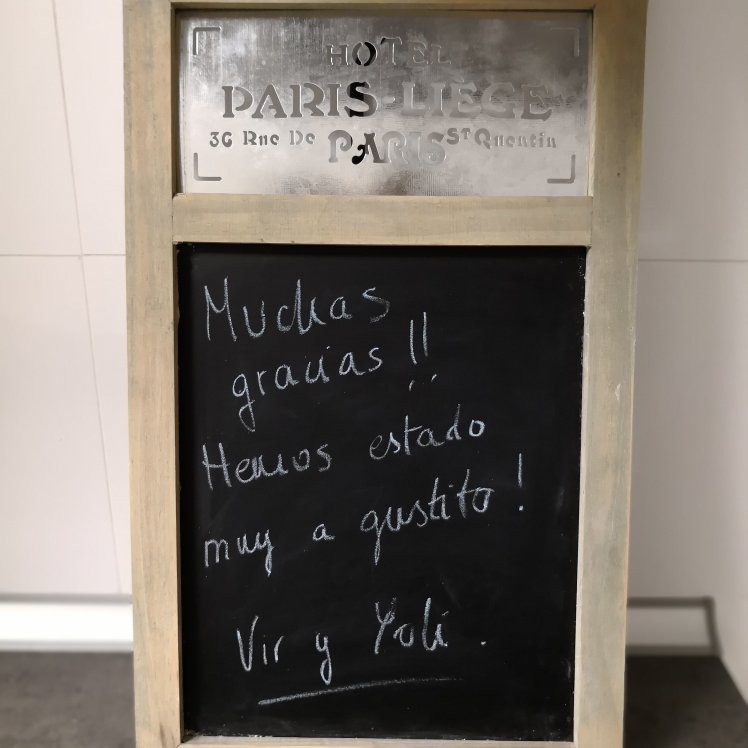 HOTEL
PARIS-LIEGE
36 Rue De PARIS St Quentin
Muchas
gracias!!
Hemos estado
muy a gustito!
Vir y Yoli.